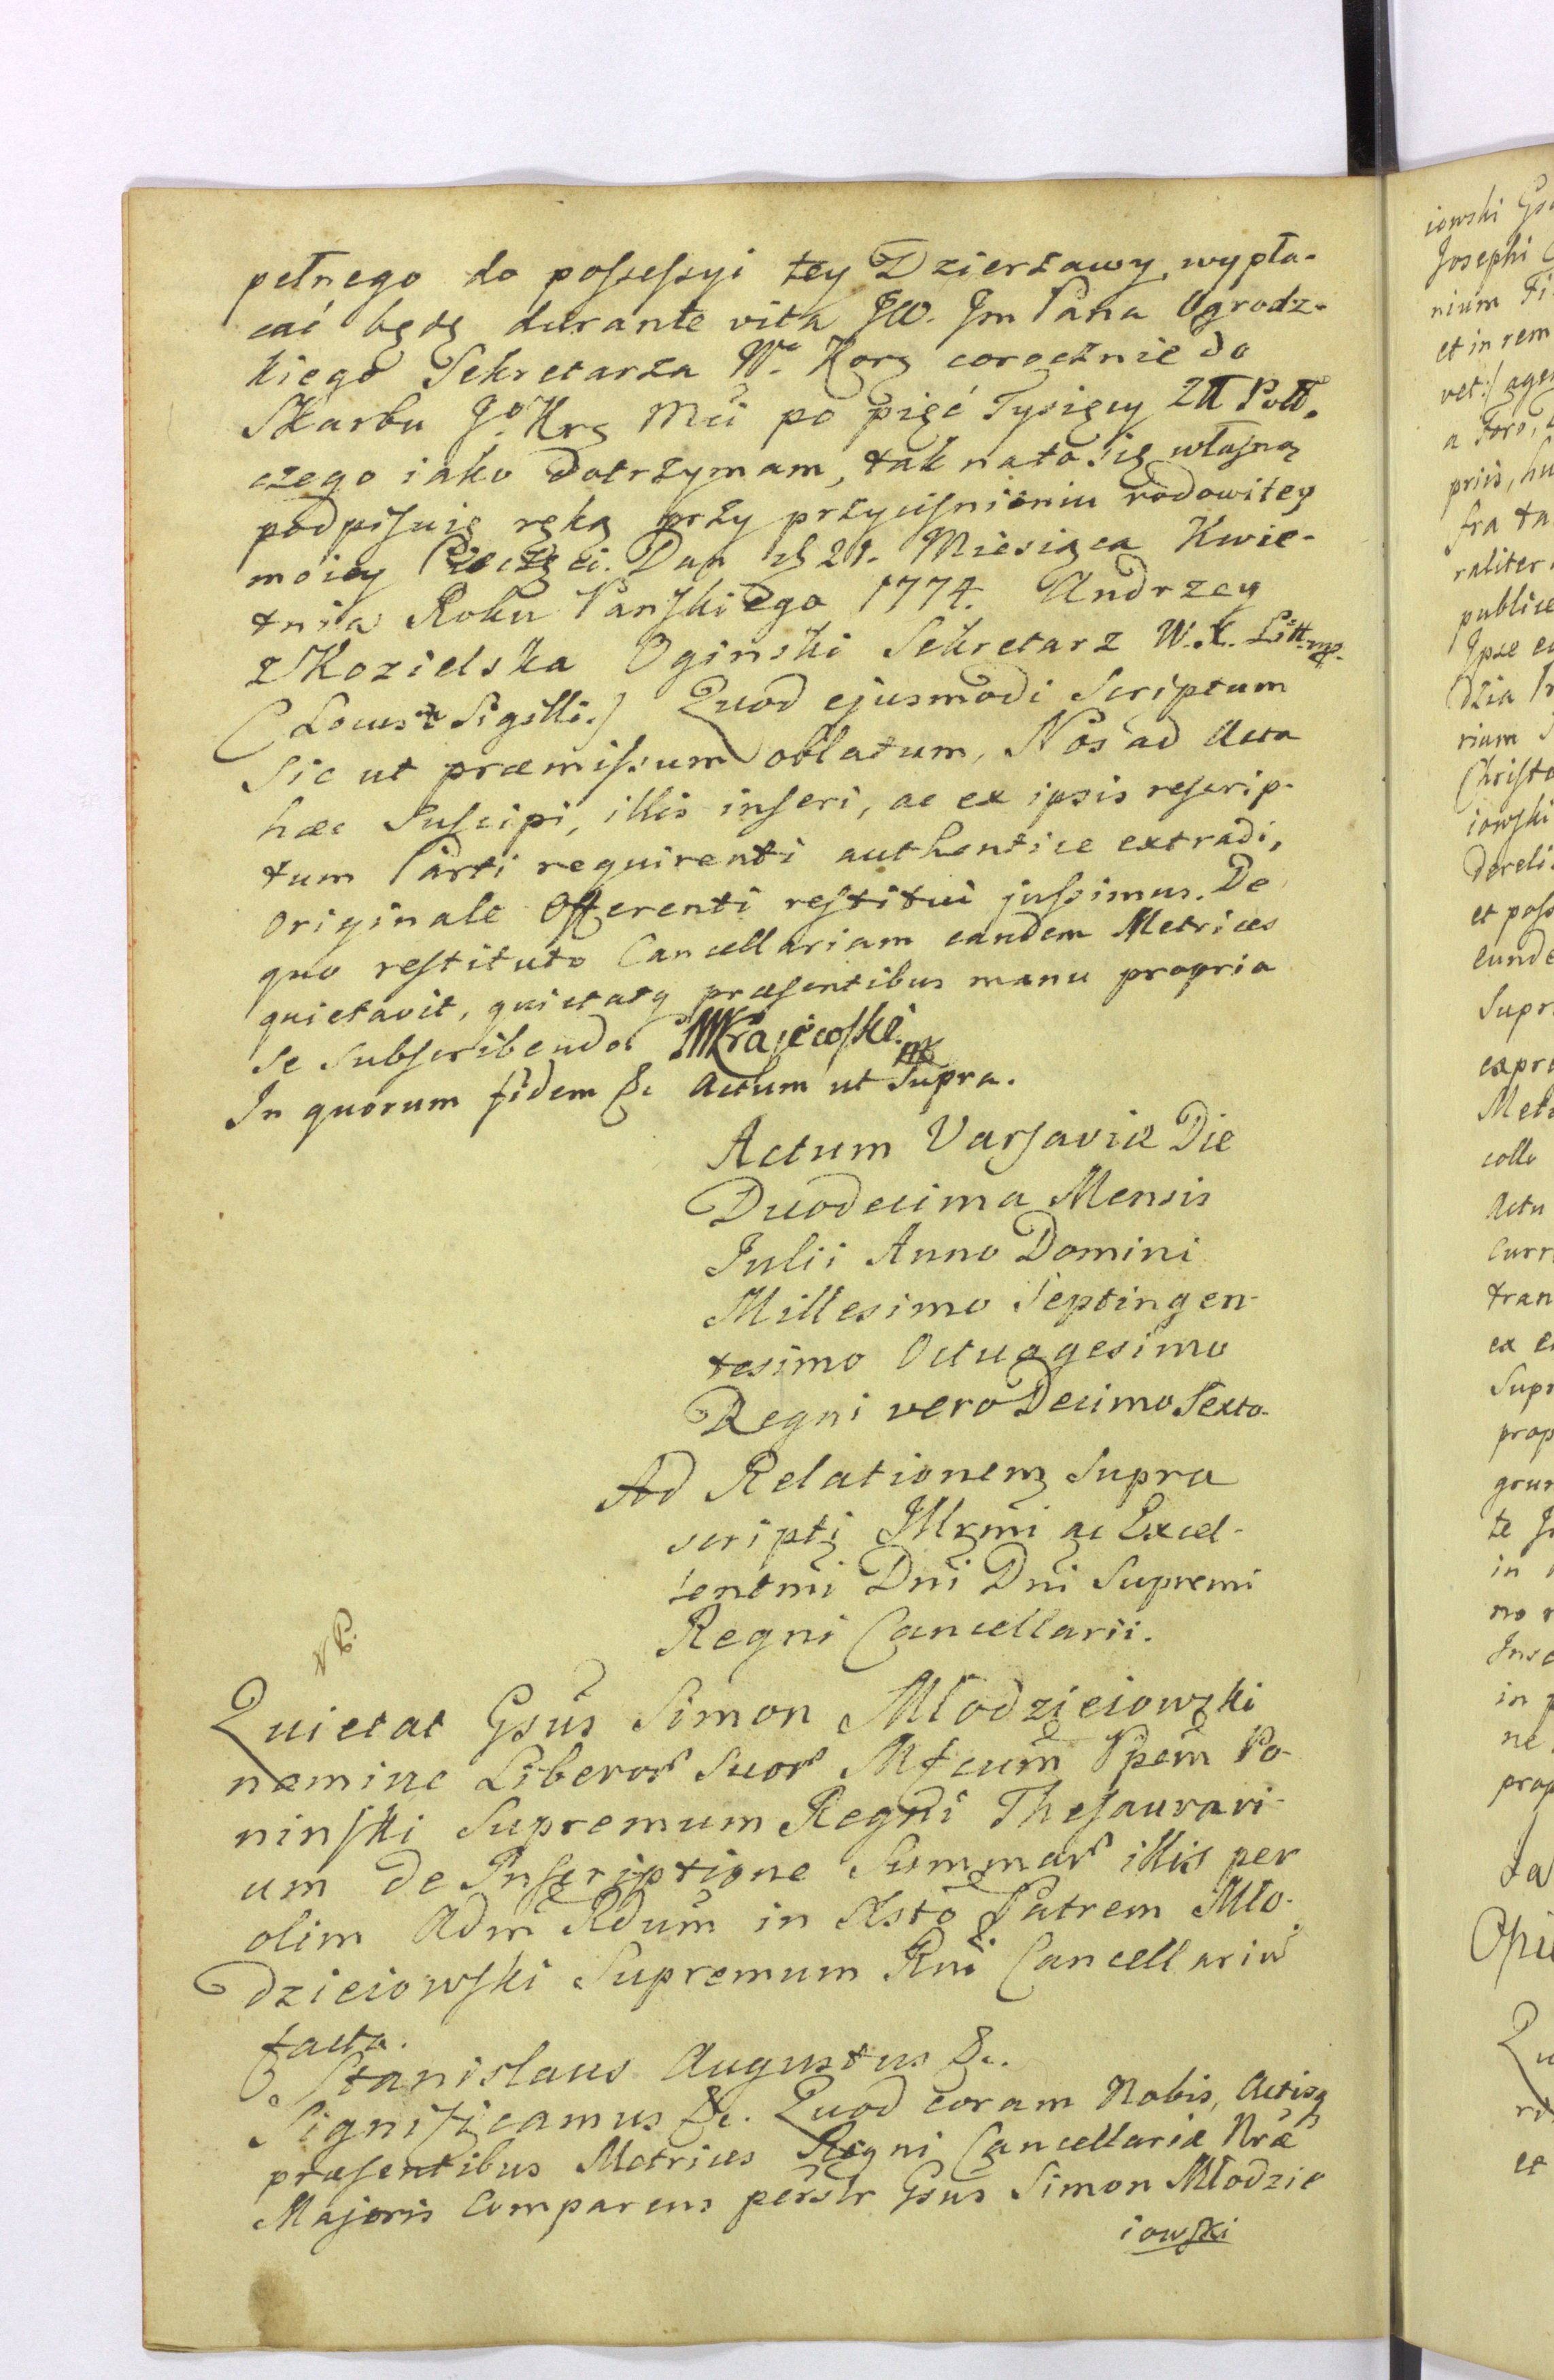 pełnego do possessyi tey Dzierżawy, wypła-
cać będę durante vita JW. Jm Pana Ogrodz-
kiego Sekretarza Wo Korg corocznie do
Skarbu Jo Krg Mci po pięć Tysięcy Zł Poll.
czego iako dotrzymam, tak nato się własną
podpisuię ręką przy przyciśnieniu rodowitey
moiey Pieczęci. Dan d 21. Miesiąca Kwie-
tnia Roku Panskiego 1774. Andrzey
z Kozielska Oginski Sekretarz W. X. Litt. mp.
(Locus Sigilli.) Quod ejusmodi Scriptum
sic ut præmissum oblatum, Nos ad Acta
hæc suscipi, illis inseri, ac ex ipsis rescrip-
tum Parti requirenti authentice extradi,
Originale Offerenti restitui jussimus. De
quo restituto Cancellariam eandem Metrices
quietavit, quietatq præsentibus manu propria
se subscribendo. Krajewski mp
In quorum fidem &c Actum ut Supra.
Actum Varsaviæ Die
Duodecima Mensis
Julii Anno Domini
Millesimo Septingen-
tesimo Octuagesimo
Regni vero Decimo Sexto.
Ad Relationem Supra
scripti Illrmi ac Excel-
lentmi Dni Dni Supremi
Regni Cancellarii.
Quietat Gsus Simon Młodzieiowski
nomine Liberor Suor Mfcum Po-
ninski Supremum Regni Thesaurari-
um de Inscriptione Summar illis per
olim Adm Rdum in Xsto Patrem Mło-
dzieiowski Supremum Rni Cancellariu
facta.
Stanislaus Augustus &c.
Significamus &c. Quod coram Nobis, Actisq
præsentibus Metrices Regni Cancellariæ Nræ
Majoris Comparens persr Gsus Simon Młodzie
iowski
iowski
Josephi
nium
et in rem
vet:/
a Foro,
fra ta
raliter
publice
Christo
iowski
dereli
et poss
Supr
expre
Met
collo
Actu
Curr
tran
ex e
Supr
prop
grun
te
in
no
in
ne
prop
et